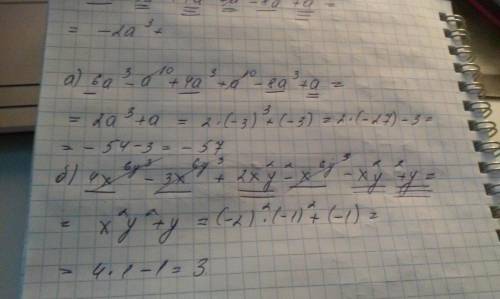 = -2a³ +
а) 6a³ - a¹⁰ + 4a³ + a¹⁰ - 8a³ + a =
= 2a³ + a = 2·(-3)³ + (-3) = 2·(-27) - 3 =
= -54 - 3 = -57
б) 4x⁶y³ - 3x⁶y³ + 2x²y² - x⁶y³ - x²y² + y =
= x²y² + y = (-2)²·(-1)² + (-1) =
= 4·1 - 1 = 3